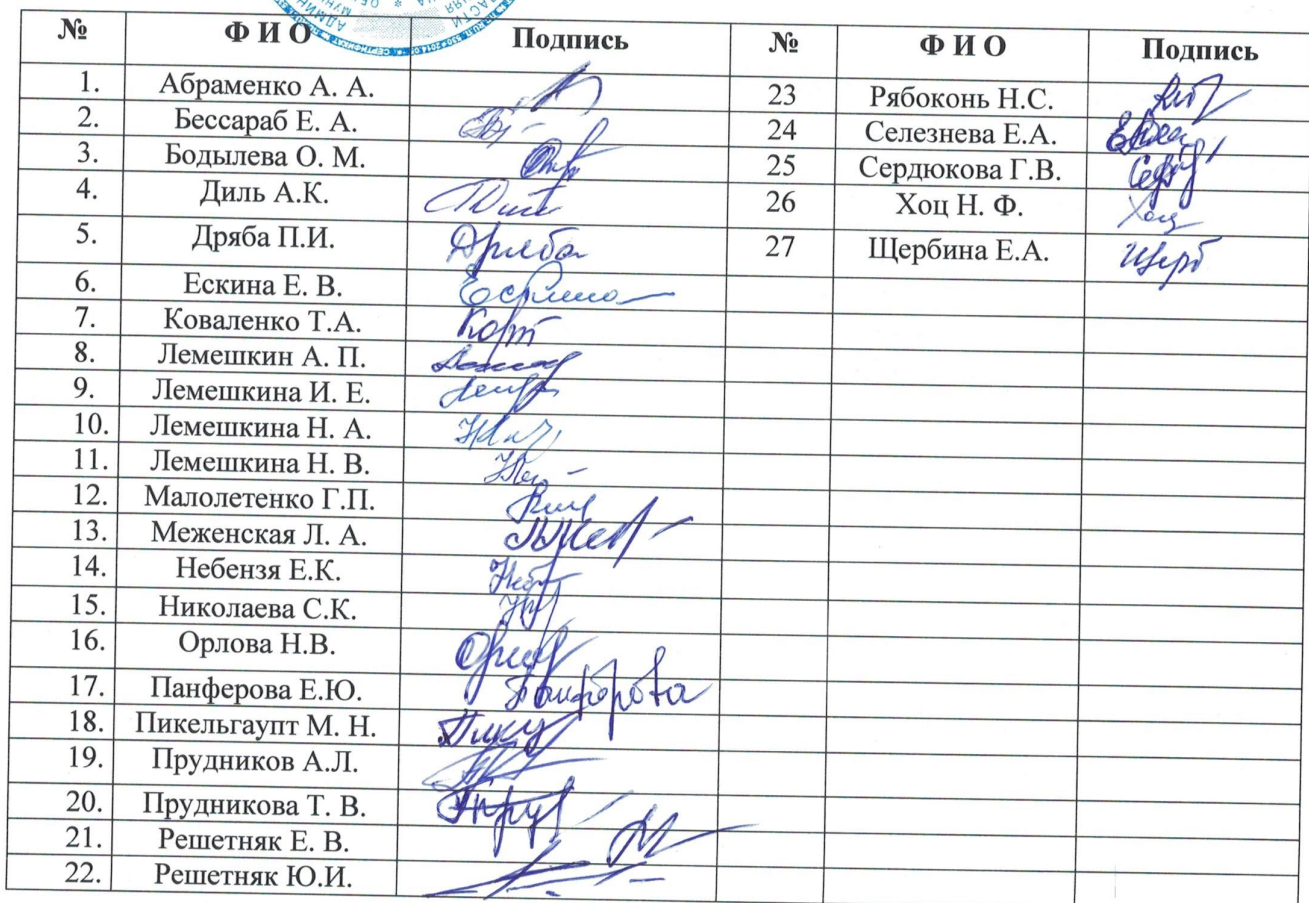 № Ф И О Подпись № Ф И О Подпись
1. Абраменко А. А. 23 Рябоконь Н.С.
2. Бессараб Е. А. 24 Селезнева Е.А.
3. Бодылева О. М. 25 Сердюкова Г.В.
4. Диль А.К. 26 Хоц Н. Ф. Хоц
5. Дряба П.И. Дряба 27 Щербина Е.А. Щерб
6. Ескина Е. В. Ескина
7. Коваленко Т.А.
8. Лемешкин А. П.
9. Лемешкина И. Е.
10. Лемешкина Н. А.
11. Лемешкина Н. В.
12. Малолетенко Г.П.
13. Меженская Л. А.
14. Небензя Е.К.
15. Николаева С.К.
16. Орлова Н.В.
17. Панферова Е.Ю. Панферова
18. Пикельгаупт М. Н.
19. Прудников А.Л.
20. Прудникова Т. В.
21. Решетняк Е. В.
22. Решетняк Ю.И.